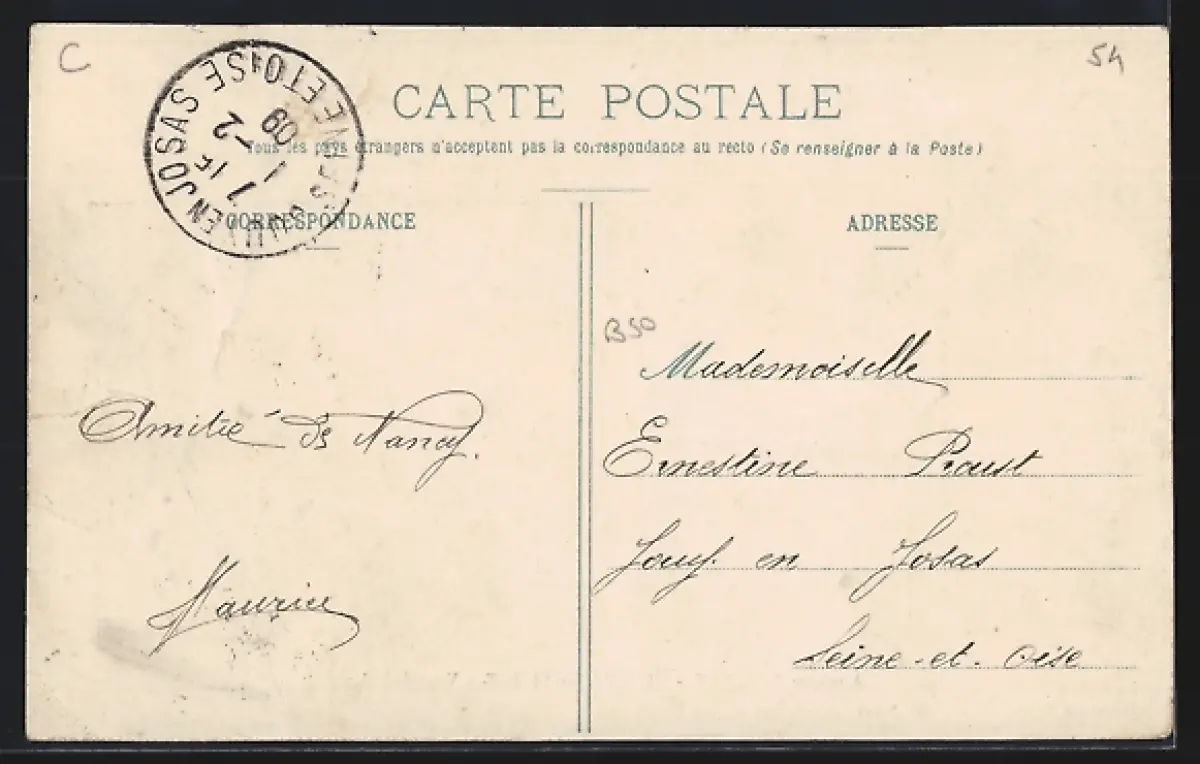 C
54
JOUY EN JOSAS SEINE ET OISE
7 15
1 -2
09
CARTE POSTALE
Tous les pays étrangers n'acceptent pas la correspondance au recto (Se renseigner à la Poste)
CORRESPONDANCE
Amitié de Nancy.
Maurice
ADRESSE
B50
Mademoiselle
Ernestine Proust
Jouy. en Josas
Seine-et-Oise